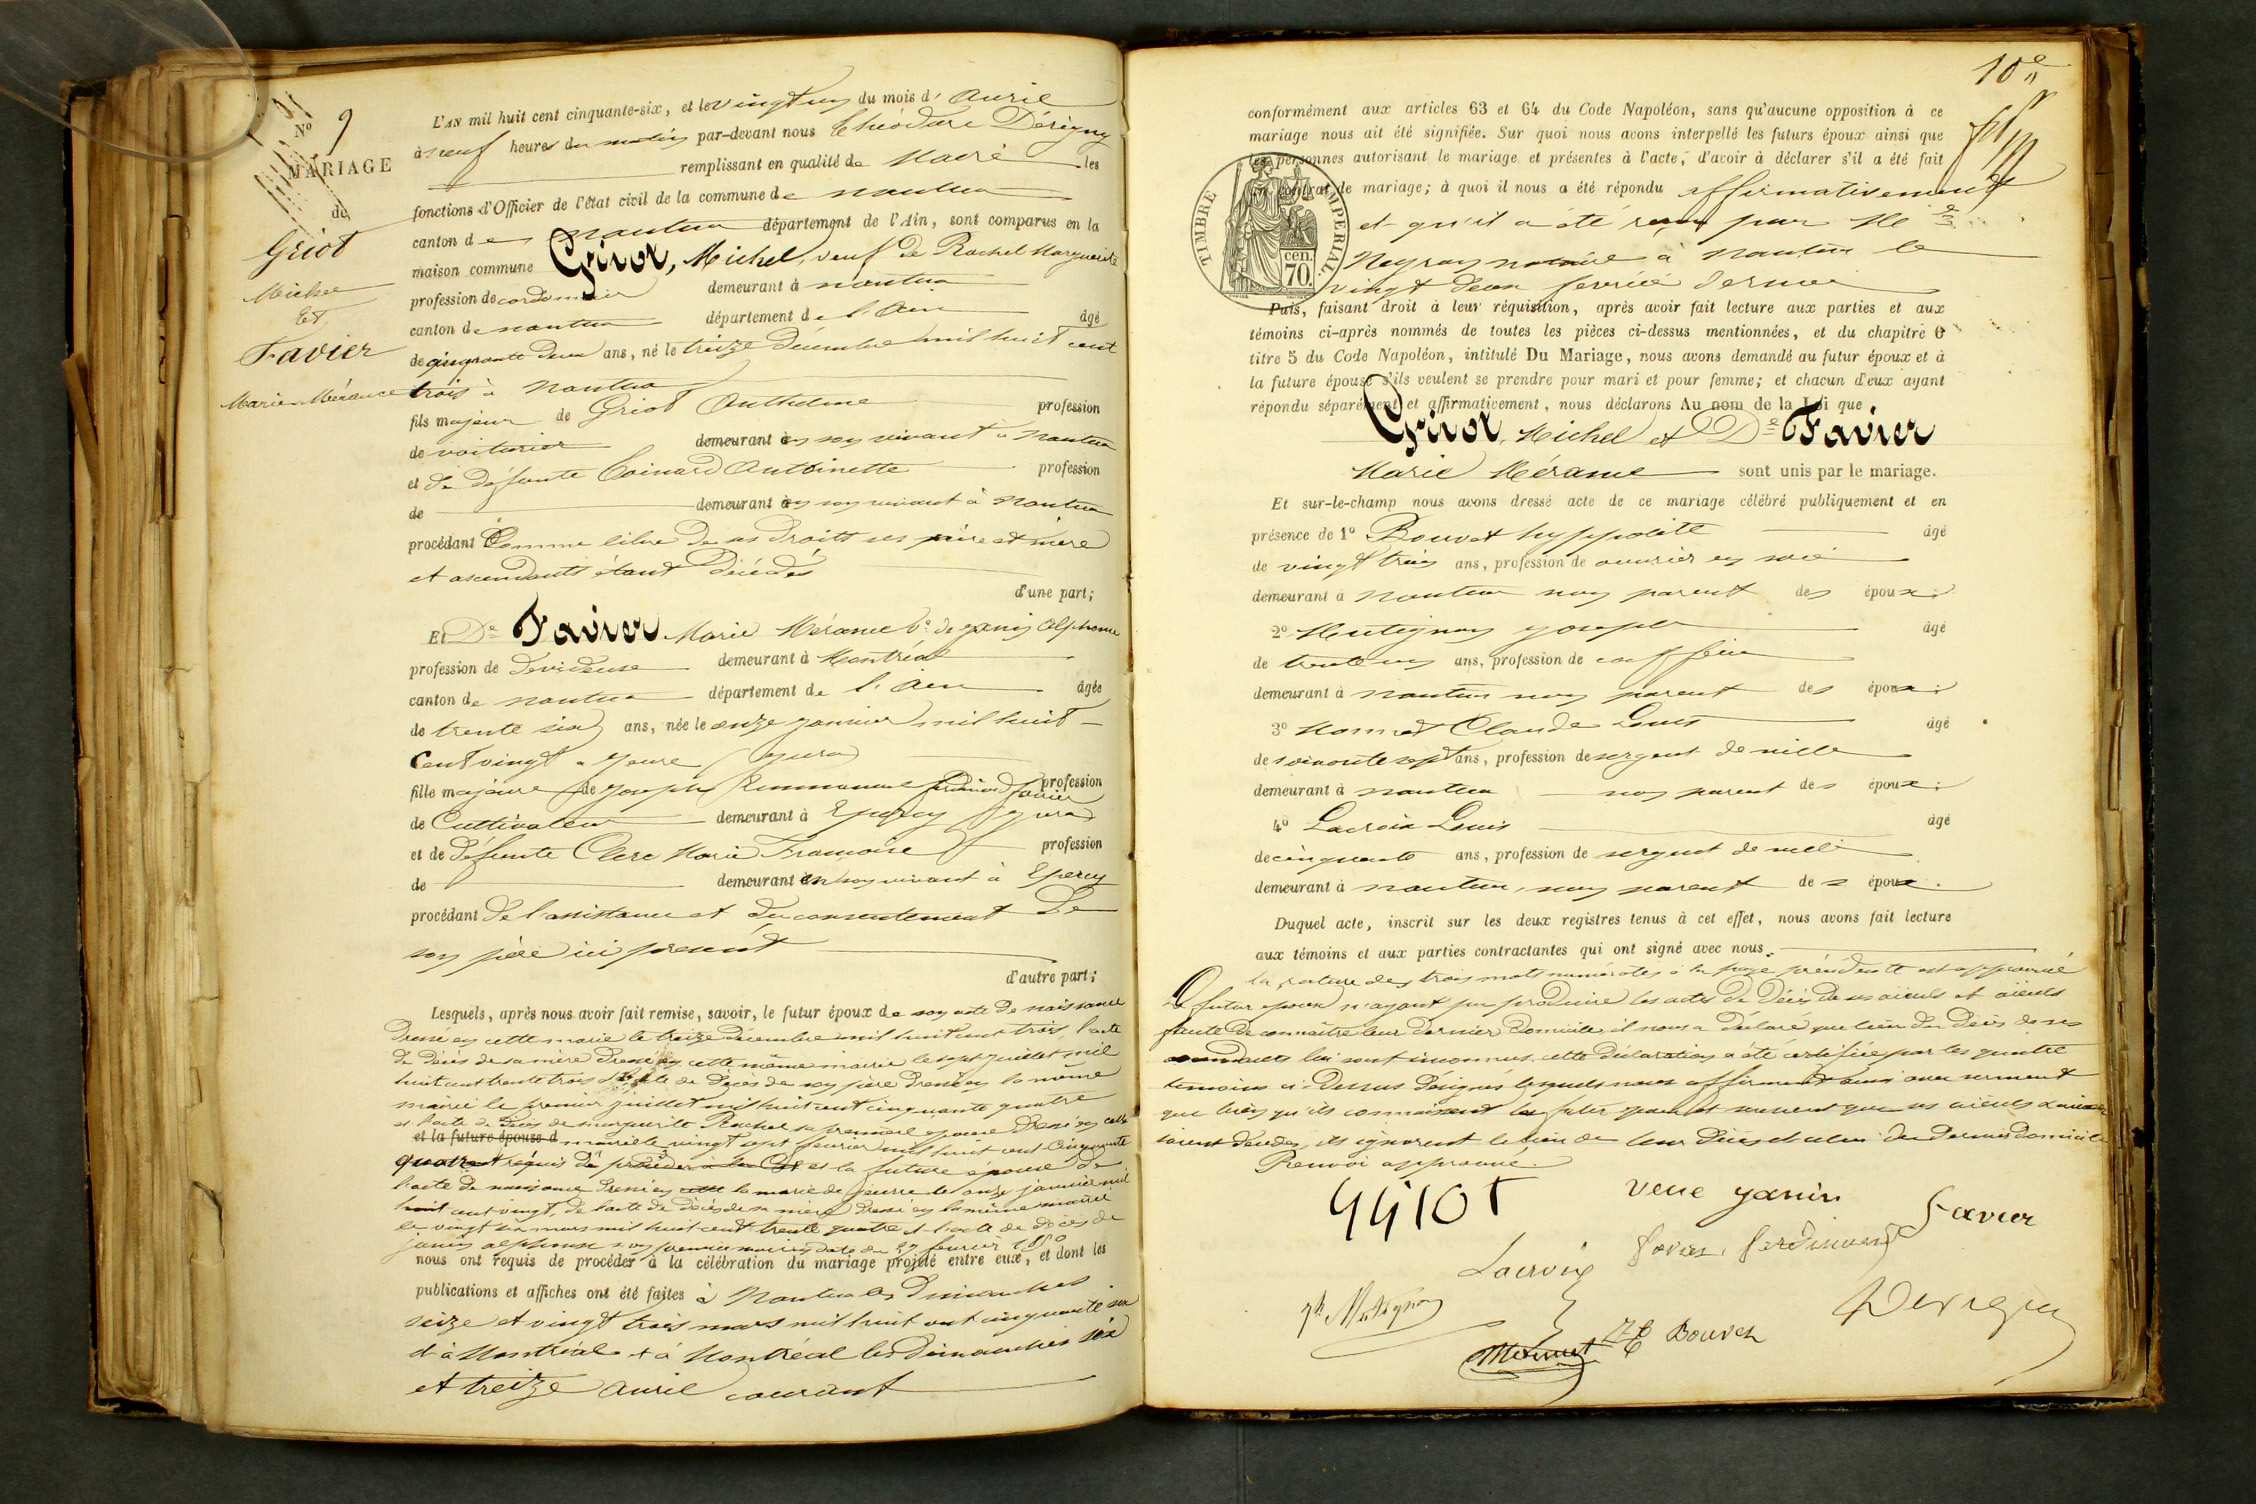 Nº 9
MARIAGE
de
Griot
Michel
Et
Favier
Marie Mérance
L'AN mil huit cent cinquante-six, et le vingt un du mois d' Avril
à neuf heures du matin par-devant nous Théodore Dérigny
remplissant en qualité de Maire les
fonctions d'Officier de l'état civil de la commune de nantua
canton de nantua département de l'Ain, sont comparus en la
maison commune Griot, Michel, veuf de Rachel Marguerite
profession de cordonnier demeurant à nantua
canton de nantua département de l'Ain âgé
de cinquante deux ans, né le treize décembre mil huit cent
trois à Nantua
fils majeur de Griot Anthelme profession
de voiturier demeurant en son vivant à Nantua
et de défunte Coinard Antoinette profession
de demeurant en son vivant à Nantua
procédant comme libre de ses droits ses père et mère
et ascendants étant décédés
d'une part;
Et De Favier Marie Mérance Ve de janin Alphonse
profession de Dévideuse demeurant à Montréal
canton de nantua département de l'Ain âgée
de trente six ans, née le onze janvier mil huit
cent vingt à Jeure (jura)
fille majeure de joseph Emmanuel ferdinand favier profession
de Cultivateur demeurant à Epercy (jura)
et de défunte Clerc Marie Françoise profession
de demeurant en son vivant à Epercy
procédant de l'assistance et du consentement de
son père ici présent
d'autre part;
Lesquels, après nous avoir fait remise, savoir, le futur époux de son acte de naissance
dressé en cette mairie le treize décembre mil huit cent trois l'acte
de décès de sa mère dressé en cette même mairie le sept juillet mil
huit cent trente trois de l'acte de décès de son père dressé en la même
mairie le premier juillet mil huit cent cinquante quatre
et l'acte de décès de marguerite Rachel sa première épouse dressé en cette
et la future épouse d mairie le vingt sept février mil huit cent cinquante
quatre requis de procéder et la future épouse de
l'acte de naissance dressé en cette la mairie de jeurre le onze janvier mil
huit cent vingt, de l'acte de décès de sa mère dressé en la même mairie
le vingt six mars mil huit cent trente quatre et l'acte de décès de
janin alphonse son premier mari en date du 27 février 1850
nous ont requis de procéder à la célébration du mariage projeté entre eux, et dont les
publications et affiches ont été faites à Nantua les Dimanches
seize et vingt trois mars mil huit cent cinquante six
et à Montréal et à Montréal les Dimanches six
et treize avril courant
10e
conformément aux articles 63 et 64 du Code Napoléon, sans qu'aucune opposition à ce
mariage nous ait été signifiée. Sur quoi nous avons interpellé les futurs époux ainsi que
les personnes autorisant le mariage et présentes à l'acte, d'avoir à déclarer s'il a été fait
un contrat de mariage; à quoi il nous a été répondu affirmativement
et qu'il a été reçu par Me
Neyron notaire à Nantua le
vingt deux février dernier
TIMBRE IMPERIAL.
cen.
70.
Puis, faisant droit à leur réquisition, après avoir fait lecture aux parties et aux
témoins ci-après nommés de toutes les pièces ci-dessus mentionnées, et du chapitre 6
titre 5 du Code Napoléon, intitulé Du Mariage, nous avons demandé au futur époux et à
la future épouse s'ils veulent se prendre pour mari et pour femme; et chacun d'eux ayant
répondu séparément et affirmativement, nous déclarons Au nom de la Loi que
Griot, Michel et De Favier
Marie Mérance sont unis par le mariage.
Et sur-le-champ nous avons dressé acte de ce mariage célébré publiquement et en
présence de 1º Bouvet hyppolite âgé
de vingt trois ans, profession de ouvrier en soie
demeurant à nantua non parent des époux;
2º Mutignon joseph âgé
de trente un ans, profession de coiffeur
demeurant à nantua non parent des époux;
3º Monnet Claude Louis âgé
de soixante sept ans, profession de sergent de ville
demeurant à nantua non parent des époux;
4º Lacroix Louis âgé
de cinquante ans, profession de sergent de ville
demeurant à nantua, non parent des époux.
Duquel acte, inscrit sur les deux registres tenus à cet effet, nous avons fait lecture
aux témoins et aux parties contractantes qui ont signé avec nous.
la rature des trois mots numérotés à la page précédente est approuvée
Le futur époux n'ayant pu produire les actes de décès de ses aïeuls et aïeules
faute de connaître leur dernier domicile, il nous a déclaré que lieu du décès de ses
ascendants lui sont inconnus. cette déclaration a été certifiée par les quatre
témoins ci-dessus désignés lesquels nous affirment aussi avec serment
que bien qu'ils connaissent le futur époux et assurent que ses aïeuls
soient décédés, ils ignorent le lieu de leur décès et celui du dernier domicile
Renvoi approuvé.
griot
veue janin
favier
favier ferdinand
Lacroix
Jh Mutignon
Monnet
H Bouvet
Derigny